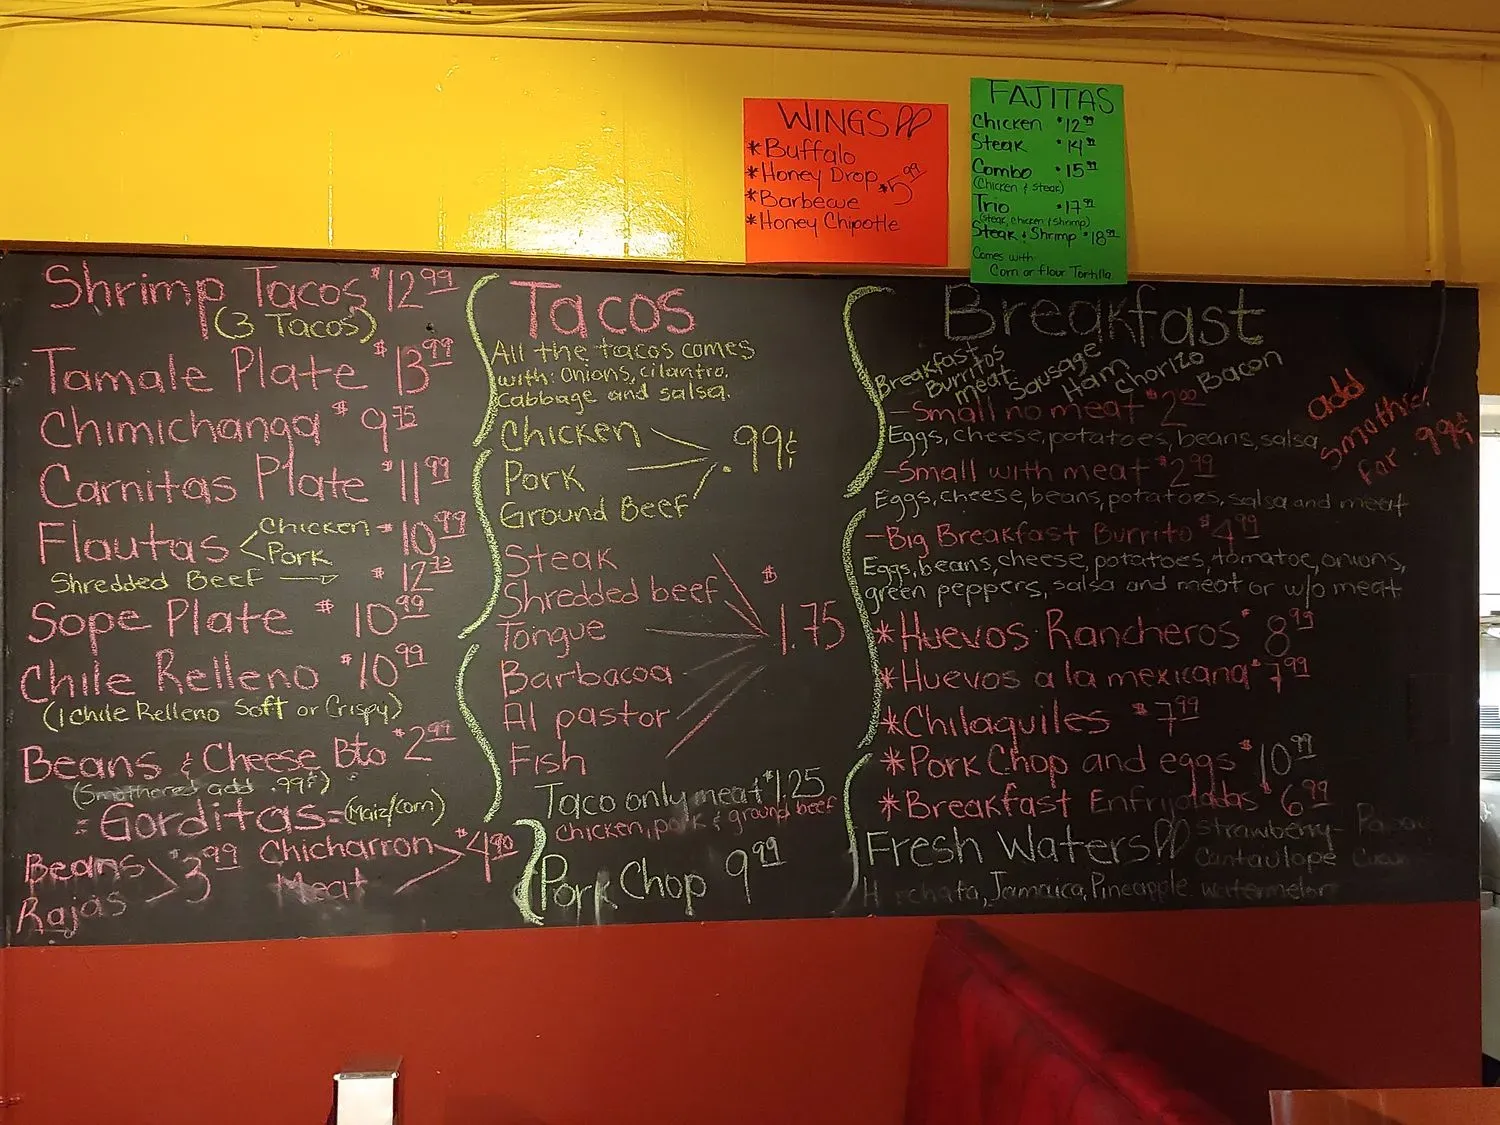 WINGS
*Buffalo
*Honey Drop $5.99
*Barbecue
*Honey Chipotle
FAJITAS
Chicken $12.99
Steak $14.99
Combo $15.99
(Chicken & Steak)
Trio $17.99
(steak, chicken & shrimp)
Steak & Shrimp $18.99
Comes with
Corn or flour Tortilla
Shrimp Tacos $12.99
(3 Tacos)
Tamale Plate $13.99
Chimichanga $9.75
Carnitas Plate $11.99
Flautas Chicken $10.99
Pork
Shredded Beef $12
Sope Plate $10.99
Chile Relleno $10.99
(1 Chile Relleno Soft or Crispy)
Beans & Cheese Bto $2.99
(Smothered add .99¢)
=Gorditas= (Maiz/corn)
Beans $3.99
Rajas
Chicharron $4.90
Meat
Tacos
All the tacos comes
with: Onions, cilantro,
cabbage and salsa.
Chicken
Pork .99¢
Ground Beef
Steak
Shredded beef
Tongue $1.75
Barbacoa
Al pastor
Fish
Taco only meat $1.25
chicken, pork & ground beef
Pork Chop 9.99
Breakfast
Breakfast
Burritos
meat Sausage
Ham Chorizo
Bacon
-Small no meat $2.00
Eggs, cheese, potatoes, beans, salsa
-Small with meat $2.99
Eggs, cheese, beans, potatoes, salsa and meat
-Big Breakfast Burrito $4.99
Eggs, beans, cheese, potatoes, tomatoe, onions,
green peppers, salsa and meat or w/o meat
*Huevos Rancheros $8.99
*Huevos a la mexicana $7.99
*Chilaquiles $7.99
*Pork Chop and eggs $10.99
*Breakfast Enfrijoladas $6.99
add
Smothie!
for .99¢
Fresh Waters
Strawberry-
Cantaulope
Horchata, Jamaica, Pineapple watermelon